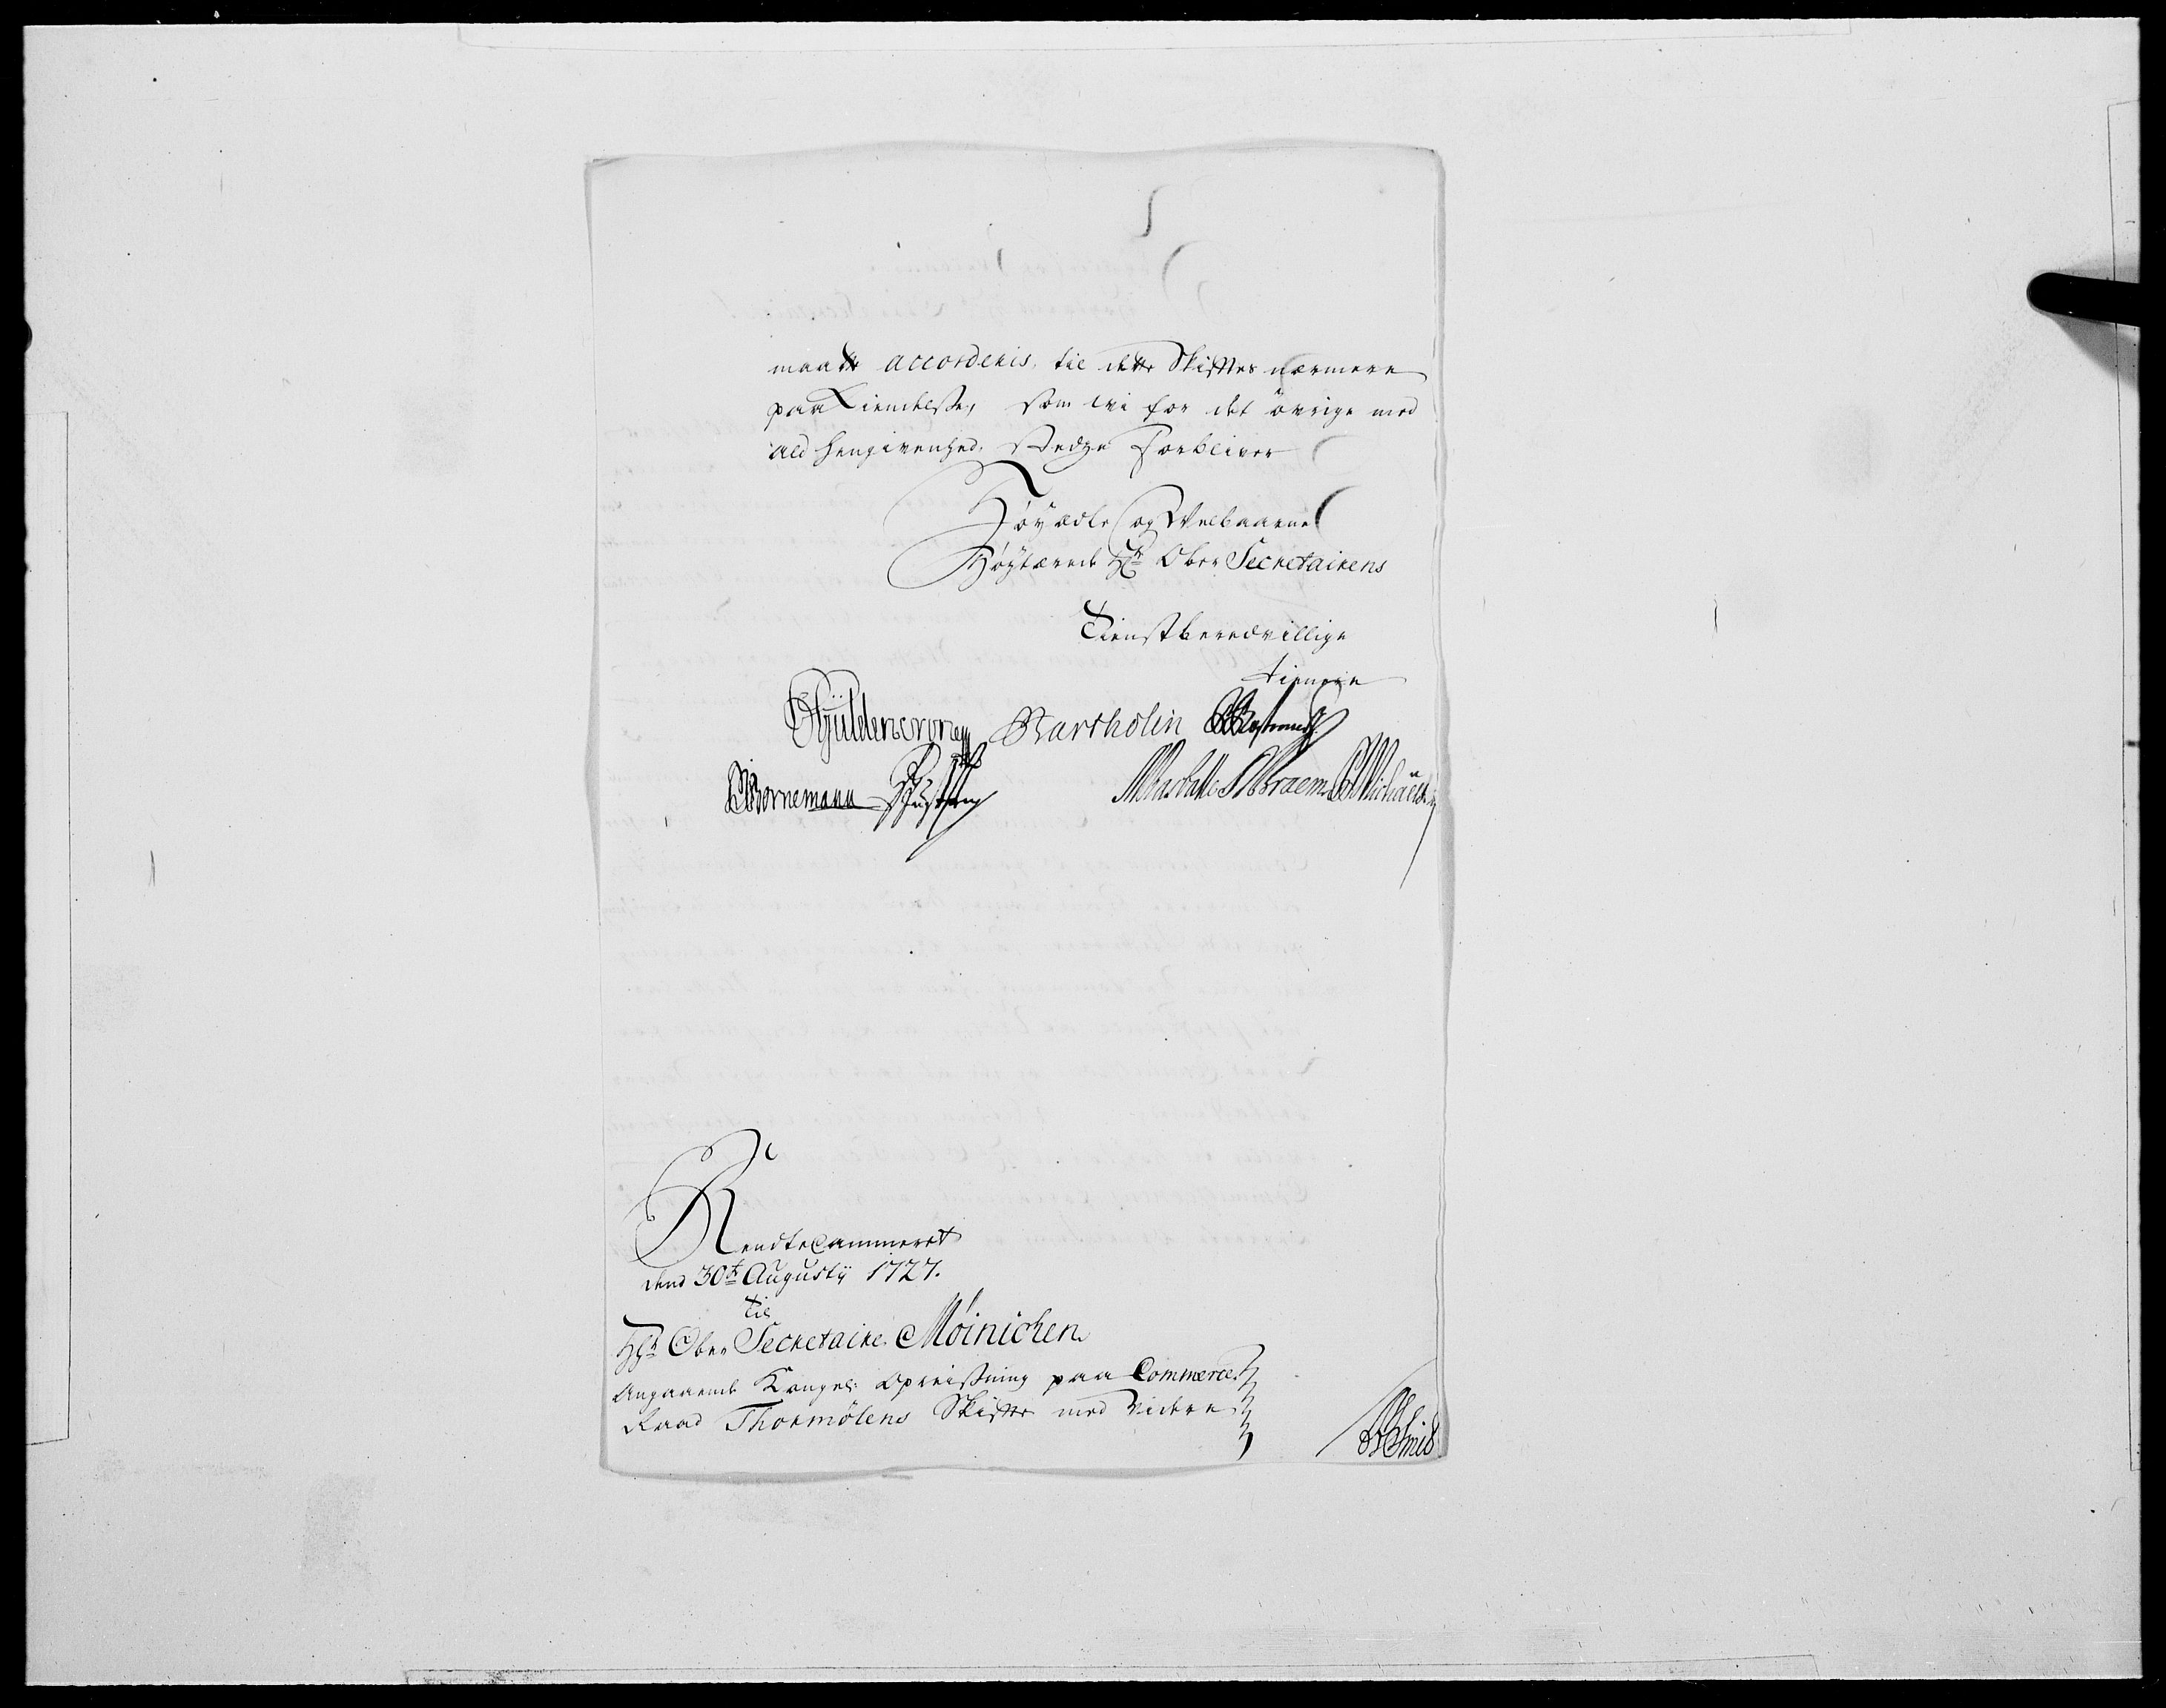 maatte accorderis, til dette Skiftes nærmere
paa Kiendelse, som wi for det øvrige med
ald hengivenhed, stedze Forbliver
Høyædle og Welbaarne
Høytærede Hr Ober Secretairens
Tienstberedvillige
tienere
Gyldencrone Bartholin
Bornemann
Rendtecammeret
dend 30te Augustij 1727.
til
Hr Ober Secretaire Møinichen
Angaaende Kongel: Opreisning paa Commerce
Raad Thormølens Skifte med videre